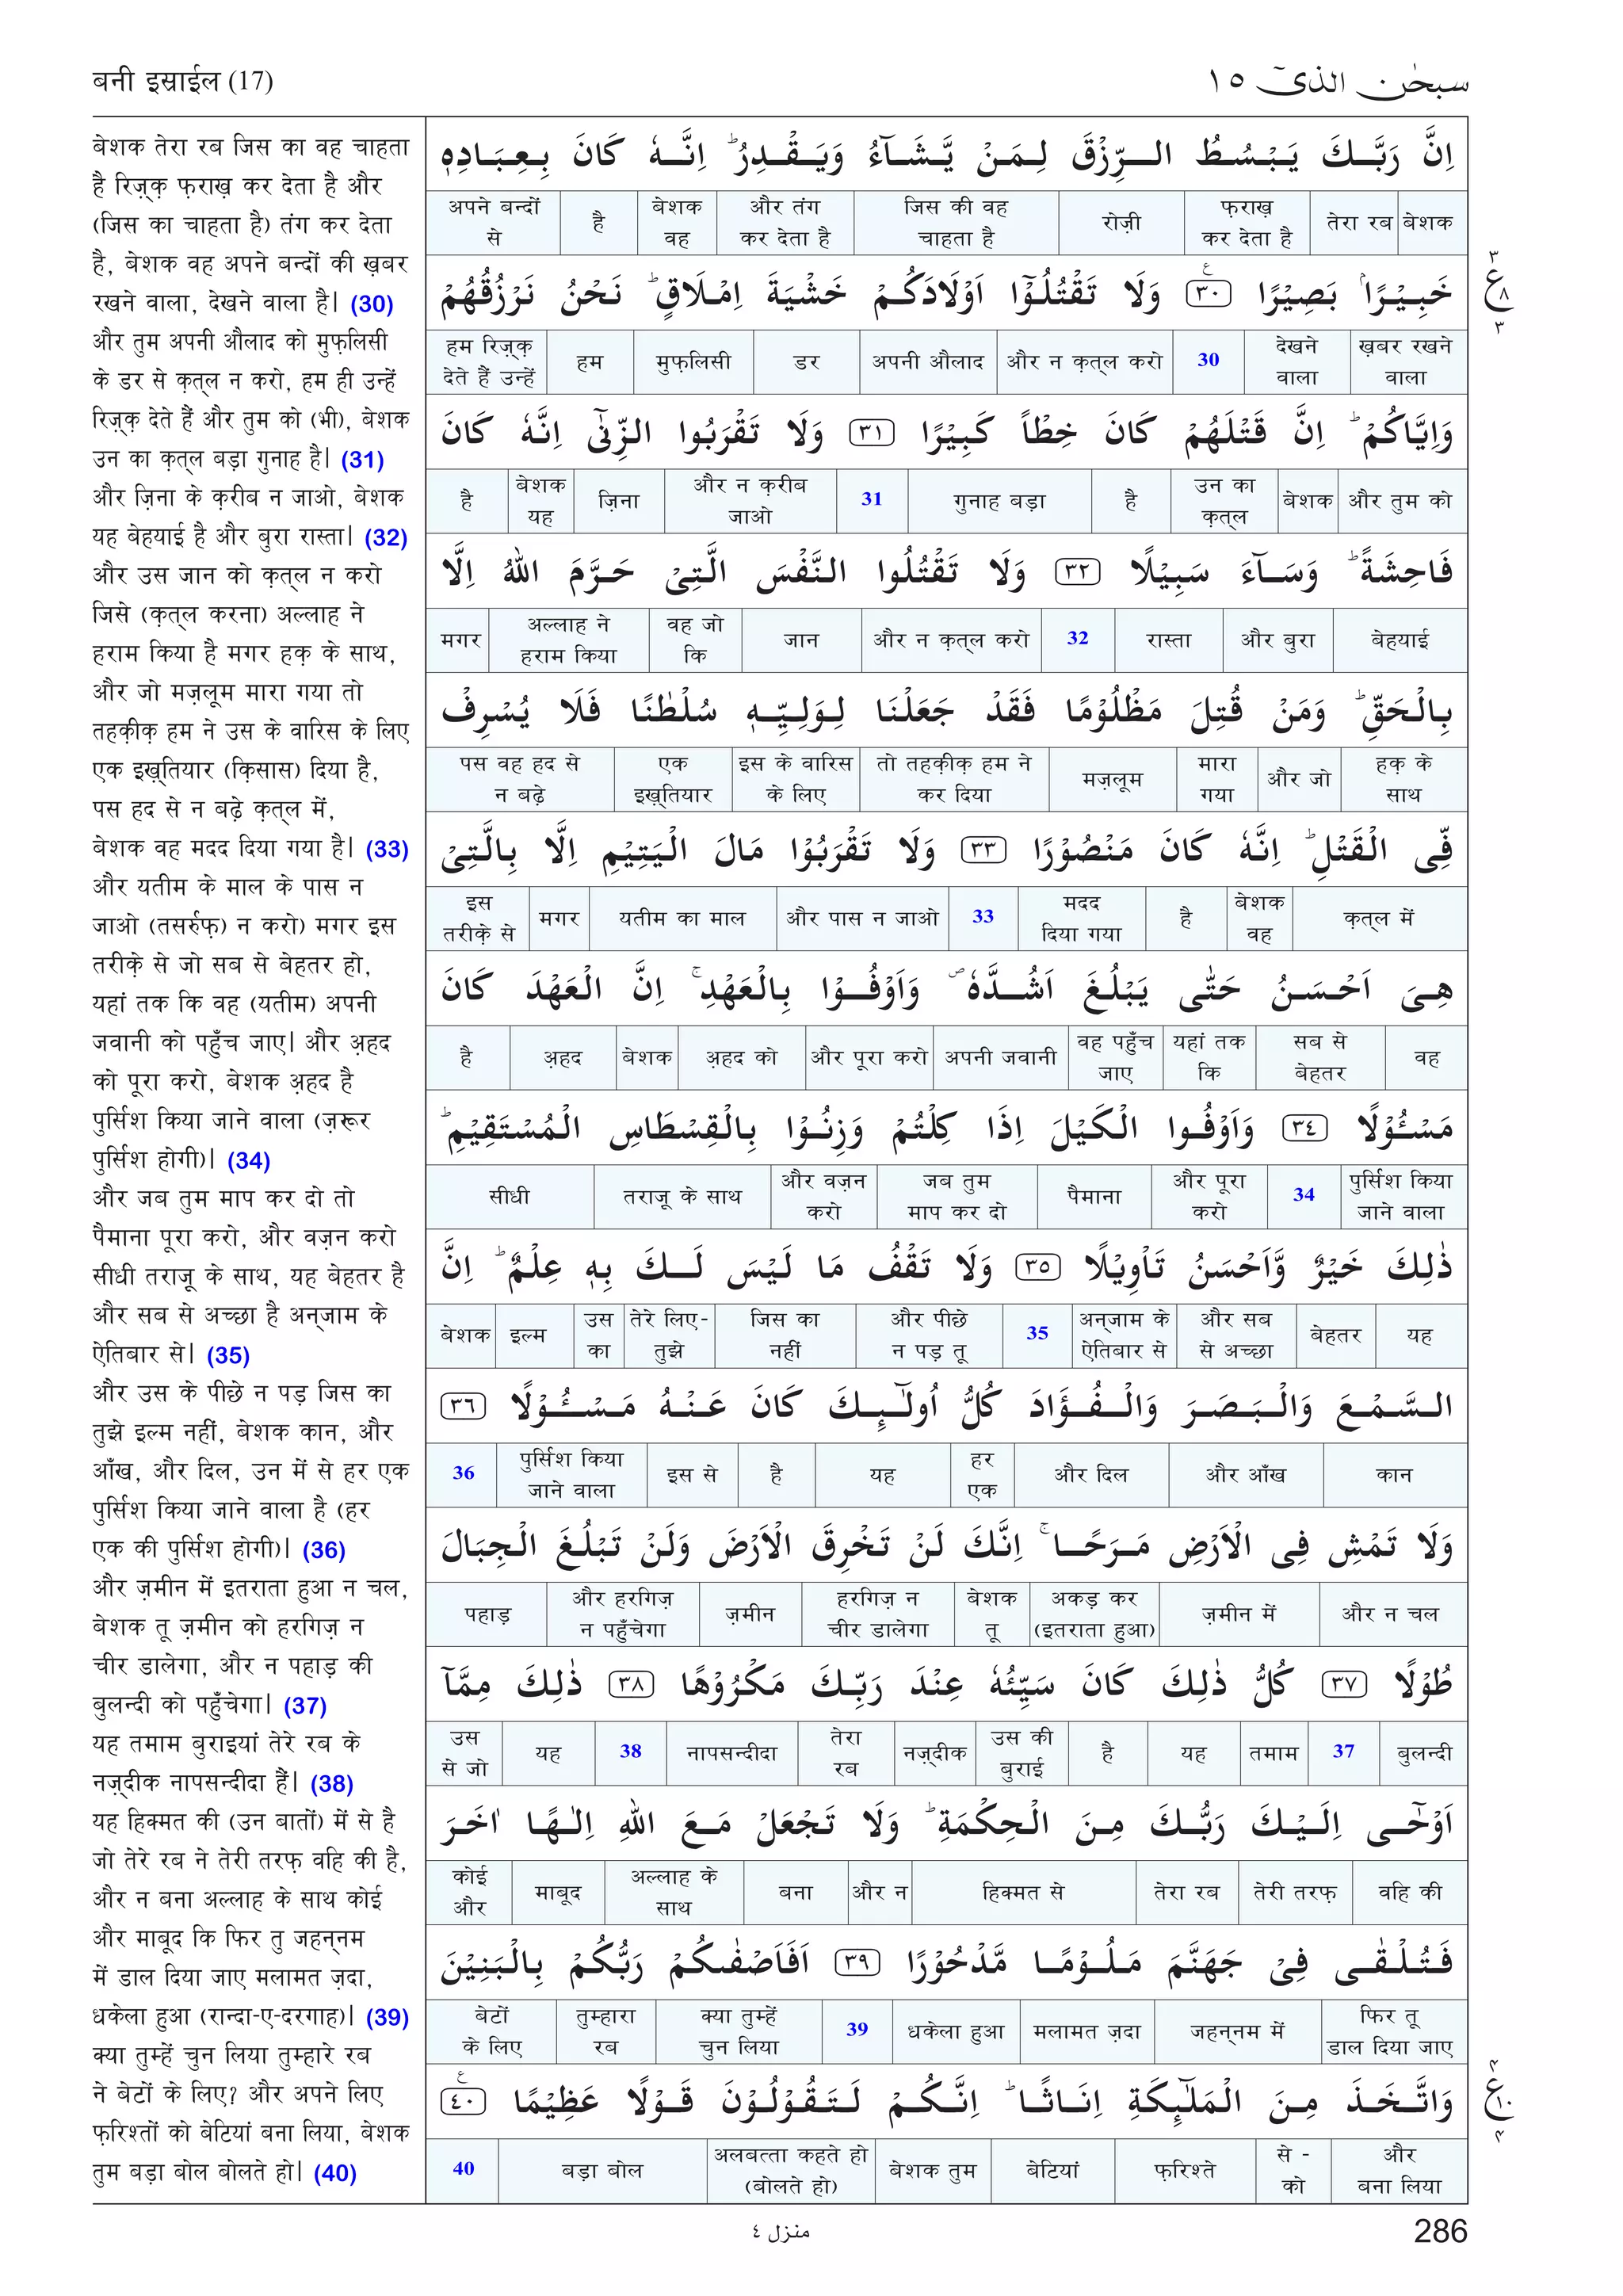 बनी इस्राईल (17)
سبحٰن الذیٓ ١٥
बेशक तेरा रब जिस का वह चाहता
है रिज़्क़ फ़राख़ कर देता है और
(जिस का चाहता है) तंग कर देता
है, बेशक वह अपने बन्दों की ख़बर
रखने वाला, देखने वाला है| (30)
और तुम अपनी औलाद को मुफ़लिसी
के डर से क़त्ल न करो, हम ही उन्हें
रिज़्क़ देते हैं और तुम को (भी), बेशक
उन का क़त्ल बड़ा गुनाह है| (31)
और ज़िना के क़रीब न जाओ, बेशक
यह बेहयाई है और बुरा रास्ता| (32)
और उस जान को क़त्ल न करो
जिसे (क़त्ल करना) अल्लाह ने
हराम किया है मगर हक़ के साथ,
और जो मज़लूम मारा गया तो
तहक़ीक़ हम ने उस के वारिस के लिए
एक इख़्तियार (क़िसास) दिया है,
पस हद से न बढ़े क़त्ल में,
बेशक वह मदद दिया गया है| (33)
और यतीम के माल के पास न
जाओ (तसर्रुफ़) न करो) मगर इस
तरीक़े से जो सब से बेहतर हो,
यहां तक कि वह (यतीम) अपनी
जवानी को पहुँच जाए| और अ़हद
को पूरा करो, बेशक अ़हद है
पुर्सिश किया जाने वाला (ज़रूर
पुर्सिश होगी)| (34)
और जब तुम माप कर दो तो
पैमाना पूरा करो, और वज़न करो
सीधी तराज़ू के साथ, यह बेहतर है
और सब से अच्छा है अन्जाम के
ऐतिबार से| (35)
और उस के पीछे न पड़ जिस का
तुझे इल्म नहीं, बेशक कान, और
आँख, और दिल, उन में से हर एक
पुर्सिश किया जाने वाला है (हर
एक की पुर्सिश होगी)| (36)
और ज़मीन में इतराता हुआ न चल,
बेशक तू ज़मीन को हरगिज़ न
चीर डालेगा, और न पहाड़ की
बुलन्दी को पहुँचेगा| (37)
यह तमाम बुराइयां तेरे रब के
नज़्दीक नापसन्दीदा हैं| (38)
यह हिक्मत की (उन बातों) में से है
जो तेरे रब ने तेरी तरफ़ वहि की है,
और न बना अल्लाह के साथ कोई
और माबूद कि फिर तु जहन्नम
में डाल दिया जाए मलामत ज़दा,
धकेला हुआ (रान्दा-ए-दरगाह)| (39)
क्या तुम्हें चुन लिया तुम्हारे रब
ने बेटों के लिए? और अपने लिए
फ़रिश्तों को बेटियां बना लिया, बेशक
तुम बड़ा बोल बोलते हो| (40)
اِنَّ رَبَّكَ يَبْسُطُ الرِّزْقَ لِمَنْ يَّشَآءُ وَيَقْدِرُ ؕ اِنَّهٗ كَانَ بِعِبَادِهٖ
बेशक तेरा रब फ़राख़ कर देता है रोज़ी जिस की वह चाहता है और तंग कर देता है बेशक वह है अपने बन्दों से
خَبِيْرًاۢ بَصِيْرًا ٣٠ وَلَا تَقْتُلُوْۤا اَوْلَادَكُمْ خَشْيَةَ اِمْلَاقٍ ؕ نَحْنُ نَرْزُقُهُمْ
ख़बर रखने वाला देखने वाला 30 और न क़त्ल करो अपनी औलाद डर मुफ़लिसी हम हम रिज़्क़ देते हैं उन्हें
وَاِيَّاكُمْ ؕ اِنَّ قَتْلَهُمْ كَانَ خِطْاً كَبِيْرًا ٣١ وَلَا تَقْرَبُوا الزِّنٰٓى اِنَّهٗ كَانَ
और तुम को बेशक उन का क़त्ल है गुनाह बड़ा 31 और न क़रीब जाओ ज़िना बेशक यह है
فَاحِشَةً ؕ وَسَآءَ سَبِيْلًا ٣٢ وَلَا تَقْتُلُوا النَّفْسَ الَّتِىْ حَرَّمَ اللّٰهُ اِلَّا
बेहयाई और बुरा रास्ता 32 और न क़त्ल करो जान वह जो कि अल्लाह ने हराम किया मगर
بِالْحَقِّ ؕ وَمَنْ قُتِلَ مَظْلُوْمًا فَقَدْ جَعَلْنَا لِوَلِيِّهٖ سُلْطٰنًا فَلَا يُسْرِفْ
हक़ के साथ और जो मारा गया मज़लूम तो तहक़ीक़ हम ने कर दिया इस के वारिस के लिए एक इख़्तियार पस वह हद से न बढ़े
فِّى الْقَتْلِ ؕ اِنَّهٗ كَانَ مَنْصُوْرًا ٣٣ وَلَا تَقْرَبُوْا مَالَ الْيَتِيْمِ اِلَّا بِالَّتِىْ
क़त्ल में बेशक वह है मदद दिया गया 33 और पास न जाओ यतीम का माल मगर इस तरीक़े से
هِىَ اَحْسَنُ حَتّٰى يَبْلُغَ اَشُدَّهٗ ۪ وَاَوْفُوْا بِالْعَهْدِ ۚ اِنَّ الْعَهْدَ كَانَ
वह सब से बेहतर यहां तक कि वह पहुँच जाए अपनी जवानी और पूरा करो अ़हद को बेशक अ़हद है
مَسْـُٔوْلًا ٣٤ وَاَوْفُوا الْكَيْلَ اِذَا كِلْتُمْ وَزِنُوْا بِالْقِسْطَاسِ الْمُسْتَقِيْمِ ؕ
पुर्सिश किया जाने वाला 34 और पूरा करो पैमाना जब तुम माप कर दो और वज़न करो तराज़ू के साथ सीधी
ذٰلِكَ خَيْرٌ وَّاَحْسَنُ تَاْوِيْلًا ٣٥ وَلَا تَقْفُ مَا لَيْسَ لَكَ بِهٖ عِلْمٌ ؕ اِنَّ
यह बेहतर और सब से अच्छा अन्जाम के ऐतिबार से 35 और पीछे न पड़ तू जिस का नहीं तेरे लिए-तुझे उस का इल्म बेशक
السَّمْعَ وَالْبَصَرَ وَالْفُؤَادَ كُلُّ اُولٰٓئِكَ كَانَ عَنْهُ مَسْـُٔوْلًا ٣٦
कान और आँख और दिल हर एक यह है इस से पुर्सिश किया जाने वाला 36
وَلَا تَمْشِ فِى الْاَرْضِ مَرَحًا ۚ اِنَّكَ لَنْ تَخْرِقَ الْاَرْضَ وَلَنْ تَبْلُغَ الْجِبَالَ
और न चल ज़मीन में अकड़ कर (इतराता हुआ) बेशक तू हरगिज़ न चीर डालेगा ज़मीन और हरगिज़ न पहुँचेगा पहाड़
طُوْلًا ٣٧ كُلُّ ذٰلِكَ كَانَ سَيِّئُهٗ عِنْدَ رَبِّكَ مَكْرُوْهًا ٣٨ ذٰلِكَ مِمَّآ
बुलन्दी 37 तमाम यह है उस की बुराई नज़्दीक तेरा रब नापसन्दीदा 38 यह उस से जो
اَوْحٰٓى اِلَيْكَ رَبُّكَ مِنَ الْحِكْمَةِ ؕ وَلَا تَجْعَلْ مَعَ اللّٰهِ اِلٰهًا اٰخَرَ
वहि की तेरी तरफ़ तेरा रब हिक्मत से और न बना अल्लाह के साथ माबूद कोई और
فَتُلْقٰى فِىْ جَهَنَّمَ مَلُوْمًا مَّدْحُوْرًا ٣٩ اَفَاَصْفٰىكُمْ رَبُّكُمْ بِالْبَنِيْنَ
फिर तू डाल दिया जाए जहन्नम में मलामत ज़दा धकेला हुआ 39 क्या तुम्हें चुन लिया तुम्हारा रब बेटों के लिए
وَاتَّخَذَ مِنَ الْمَلٰٓئِكَةِ اِنَاثًا ؕ اِنَّكُمْ لَتَقُوْلُوْنَ قَوْلًا عَظِيْمًا ٤٠
और बना लिया से - को फ़रिश्ते बेटियां बेशक तुम अलबत्ता कहते हो (बोलते हो) बड़ा बोल 40
٣
ع ٨
٣
٤
ع ١٠
٤
منزل ٤
286